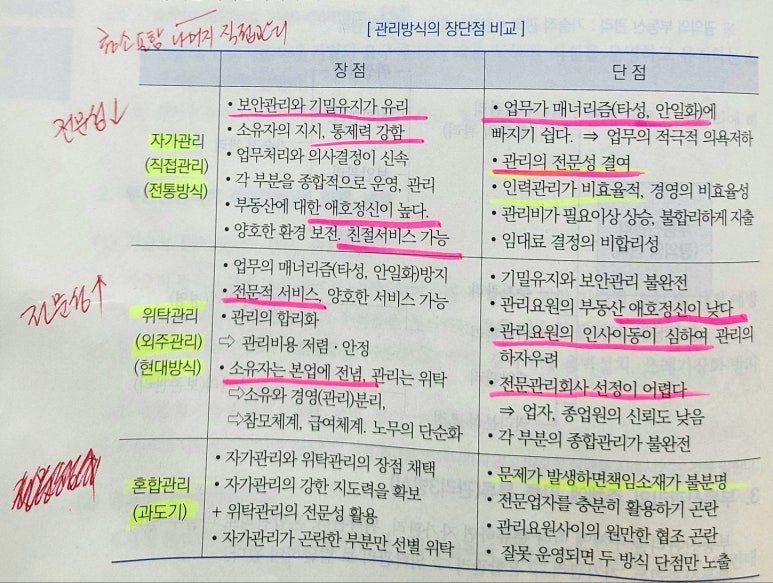 [ 관리방식의 장단점 비교 ]
장 점
단 점
전문성↓
자가관리
(직접관리)
(전통방식)
• 보안관리와 기밀유지가 유리
• 소유자의 지시, 통제력 강함
• 업무처리와 의사결정이 신속
• 각 부분을 종합적으로 운영, 관리
• 부동산에 대한 애호정신이 높다.
• 양호한 환경 보전. 친절서비스 가능
• 업무가 매너리즘(타성, 안일화)에
빠지기 쉽다. ⇒ 업무의 적극적 의욕저하
• 관리의 전문성 결여
• 인력관리가 비효율적, 경영의 비효율성
• 관리비가 필요이상 상승, 불합리하게 지출
• 임대료 결정의 비합리성
전문성↑
위탁관리
(외주관리)
(현대방식)
• 업무의 매너리즘(타성, 안일화)방지
• 전문적 서비스, 양호한 서비스 가능
• 관리의 합리화
⇨ 관리비용 저렴·안정
• 소유자는 본업에 전념, 관리는 위탁
⇨소유와 경영(관리)분리,
⇨참모체계, 급여체계. 노무의 단순화
• 기밀유지와 보안관리 불완전
• 관리요원의 부동산 애호정신이 낮다.
• 관리요원의 인사이동이 심하여 관리의
하자우려
• 전문관리회사 선정이 어렵다
⇒ 업자, 종업원의 신뢰도 낮음
• 각 부분의 종합관리가 불완전
혼합관리
(과도기)
• 자가관리와 위탁관리의 장점 채택
• 자가관리의 강한 지도력을 확보
+ 위탁관리의 전문성 활용
• 자가관리가 곤란한 부분만 선별 위탁
• 문제가 발생하면책임소재가 불분명
• 전문업자를 충분히 활용하기 곤란
• 관리요원사이의 원만한 협조 곤란
• 잘못 운영되면 두 방식 단점만 노출